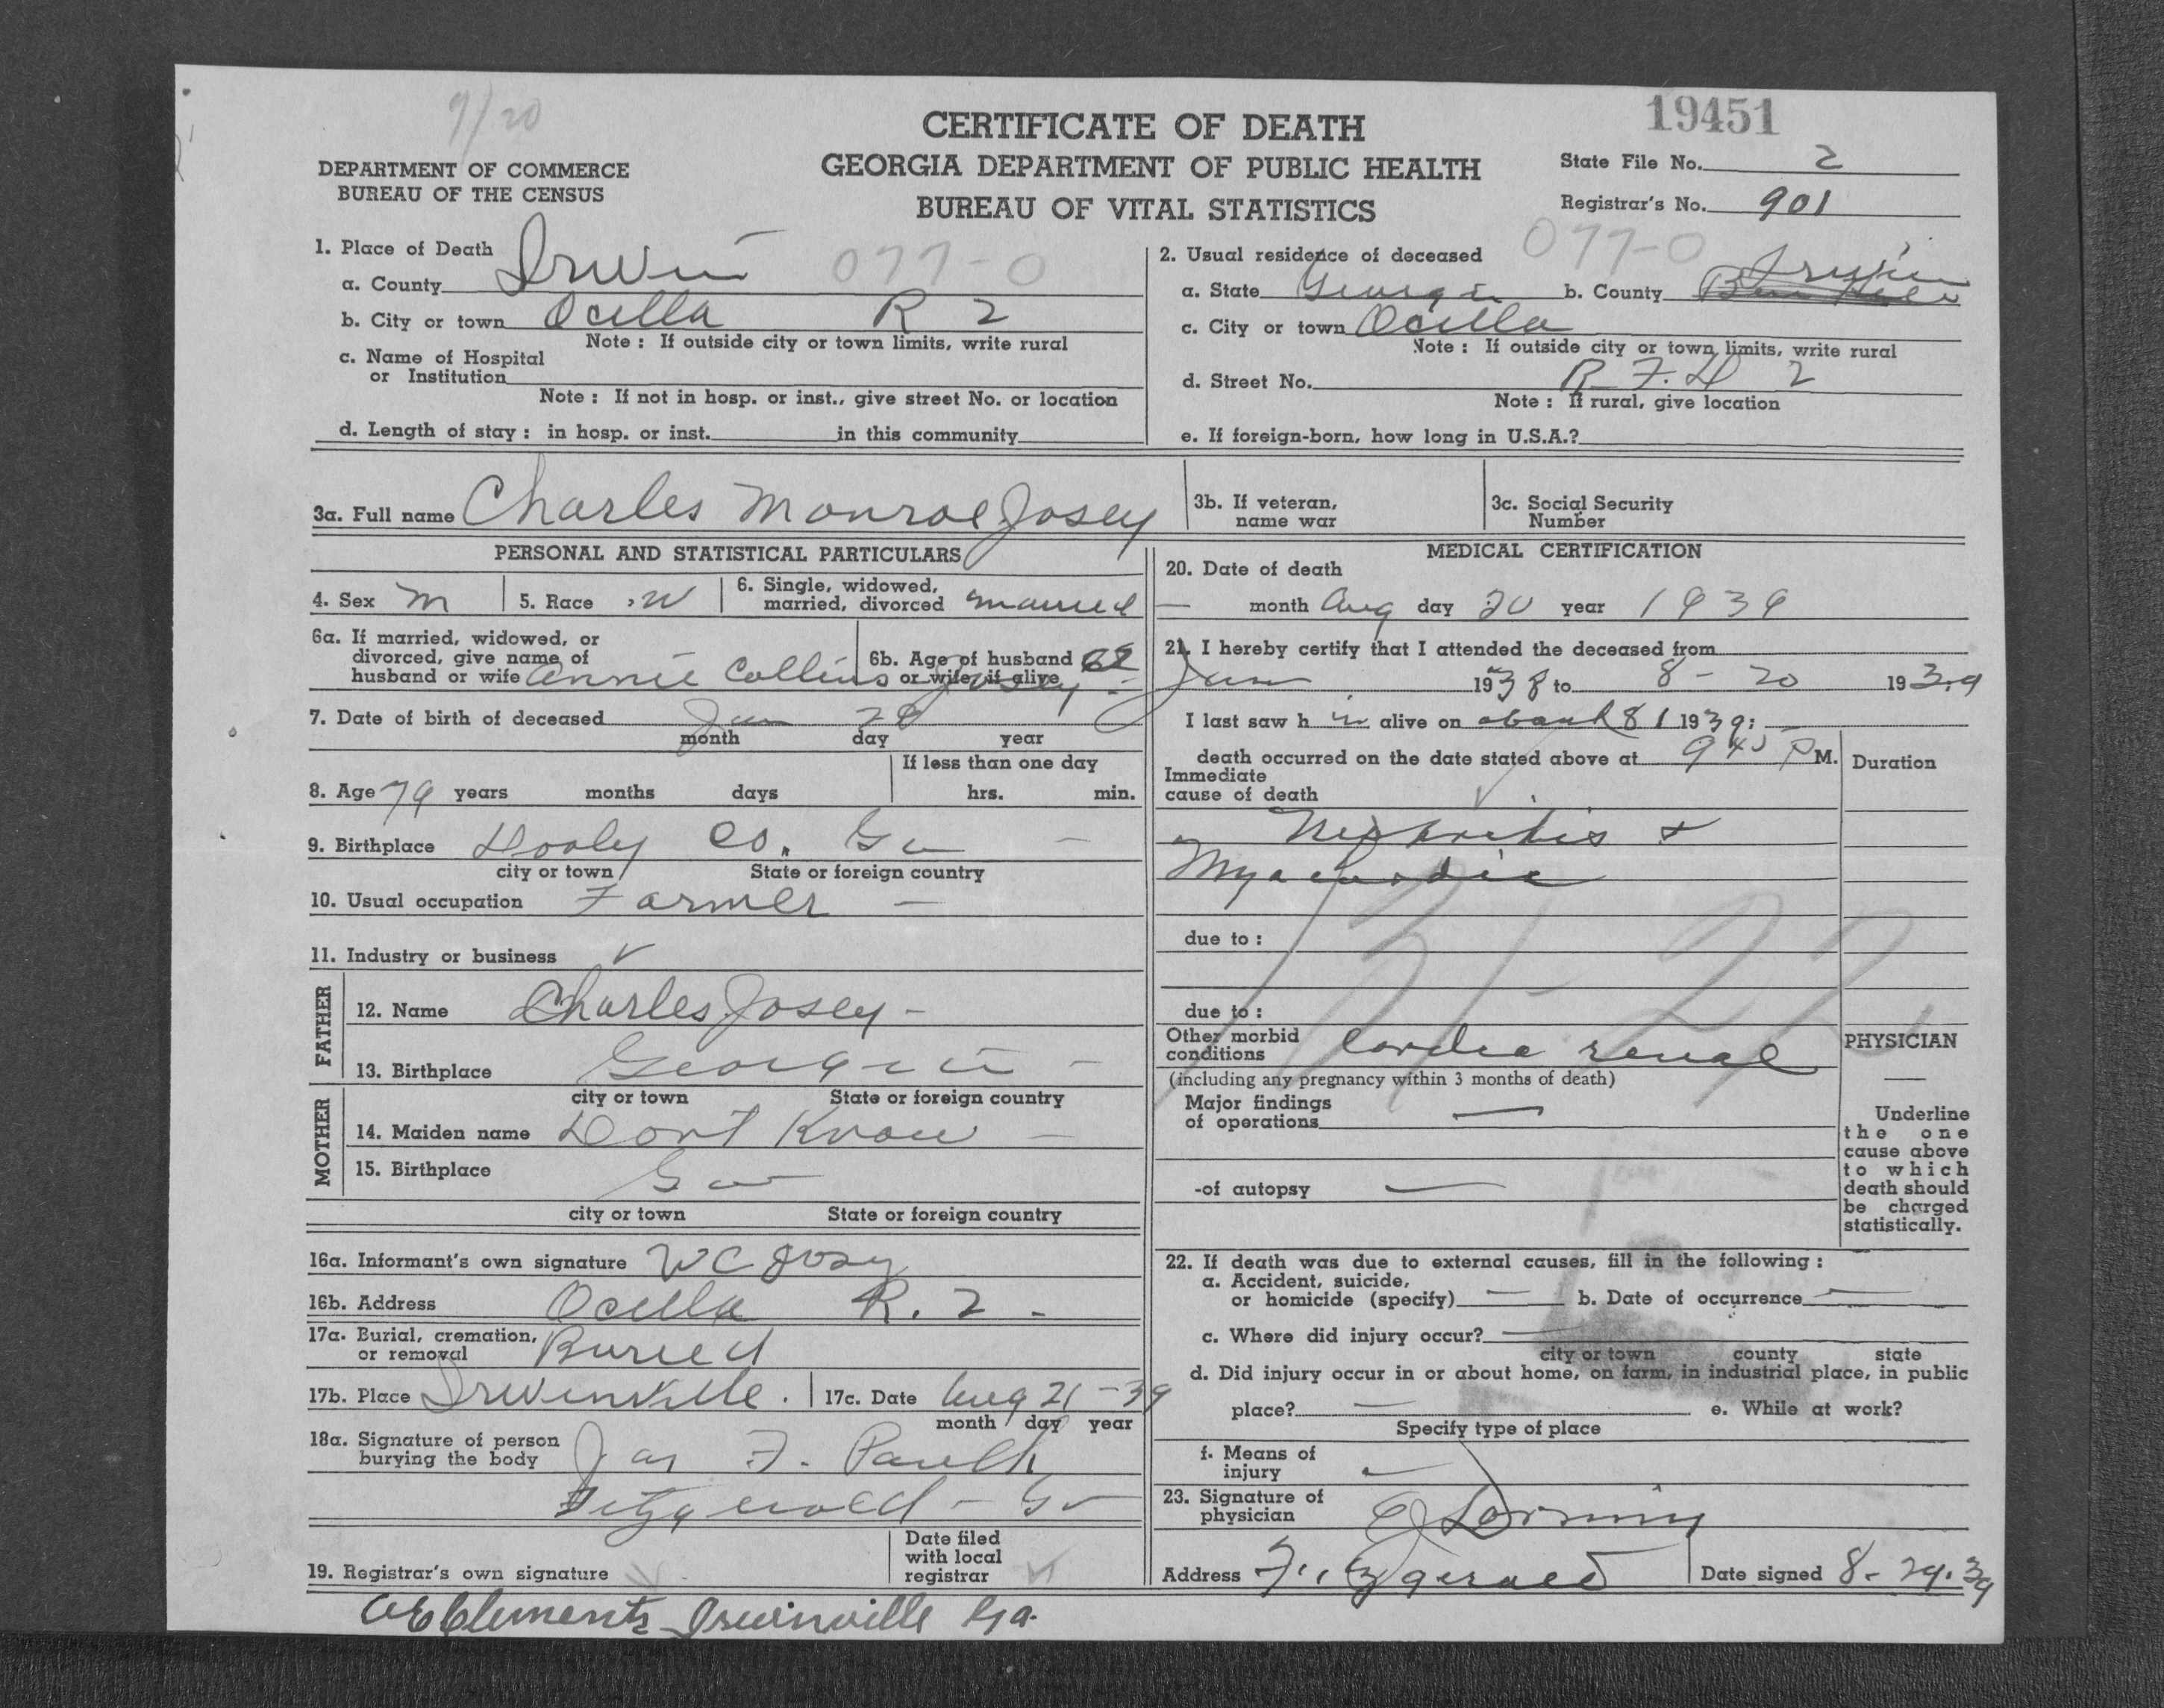 9/20
19451
CERTIFICATE OF DEATH
GEORGIA DEPARTMENT OF PUBLIC HEALTH
BUREAU OF VITAL STATISTICS
DEPARTMENT OF COMMERCE
BUREAU OF THE CENSUS
State File No. 2
Registrar's No. 901
1. Place of Death
a. County Irwin 077-0
b. City or town Ocilla R 2
Note : If outside city or town limits, write rural
c. Name of Hospital
or Institution
Note : If not in hosp. or inst., give street No. or location
d. Length of stay : in hosp. or inst. in this community
2. Usual residence of deceased 077-0
a. State Georgia b. County Ben Hill Irwin
c. City or town Ocilla
Note : If outside city or town limits, write rural
d. Street No. R F. D 2
Note : If rural, give location
e. If foreign-born, how long in U.S.A.?
3a. Full name Charles Monroe Josey
3b. If veteran,
name war
3c. Social Security
Number
PERSONAL AND STATISTICAL PARTICULARS
4. Sex M 5. Race W 6. Single, widowed,
married, divorced married
6a. If married, widowed, or
divorced, give name of
husband or wife Annie Collins Josey
6b. Age of husband
or wife, if alive
7. Date of birth of deceased Jan
month day year
If less than one day
8. Age 79 years months days hrs. min.
9. Birthplace Dooly Co. Ga
city or town State or foreign country
10. Usual occupation Farmer
11. Industry or business
FATHER
12. Name Charles Josey
13. Birthplace Georgia
city or town State or foreign country
MOTHER
14. Maiden name Dont Know
15. Birthplace Ga
city or town State or foreign country
16a. Informant's own signature W C Josey
16b. Address Ocilla R. 2
17a. Burial, cremation,
or removal Buried
17b. Place Irwinville. 17c. Date Aug 21-39
month day year
18a. Signature of person
burying the body Jas F. Paulk
Fitzgerald - Ga
Date filed
with local
registrar
19. Registrar's own signature
Clements Irwinville Ga.
MEDICAL CERTIFICATION
20. Date of death
month Aug day 20 year 1939
21. I hereby certify that I attended the deceased from
1938 to 8-20 1939
I last saw h im alive on about 8 1 1939;
death occurred on the date stated above at 9 45 P M.
Duration
Immediate
cause of death
Nephritis &
due to :
due to :
Other morbid
conditions Cardio renal
(including any pregnancy within 3 months of death)
Major findings
of operations
-of autopsy
PHYSICIAN
Underline
the one
cause above
to which
death should
be charged
statistically.
22. If death was due to external causes, fill in the following :
a. Accident, suicide,
or homicide (specify) b. Date of occurrence
c. Where did injury occur?
city or town county state
d. Did injury occur in or about home, on farm, in industrial place, in public
place? e. While at work?
Specify type of place
f. Means of
injury
23. Signature of
physician
Address Fitzgerald Date signed 8-29-39